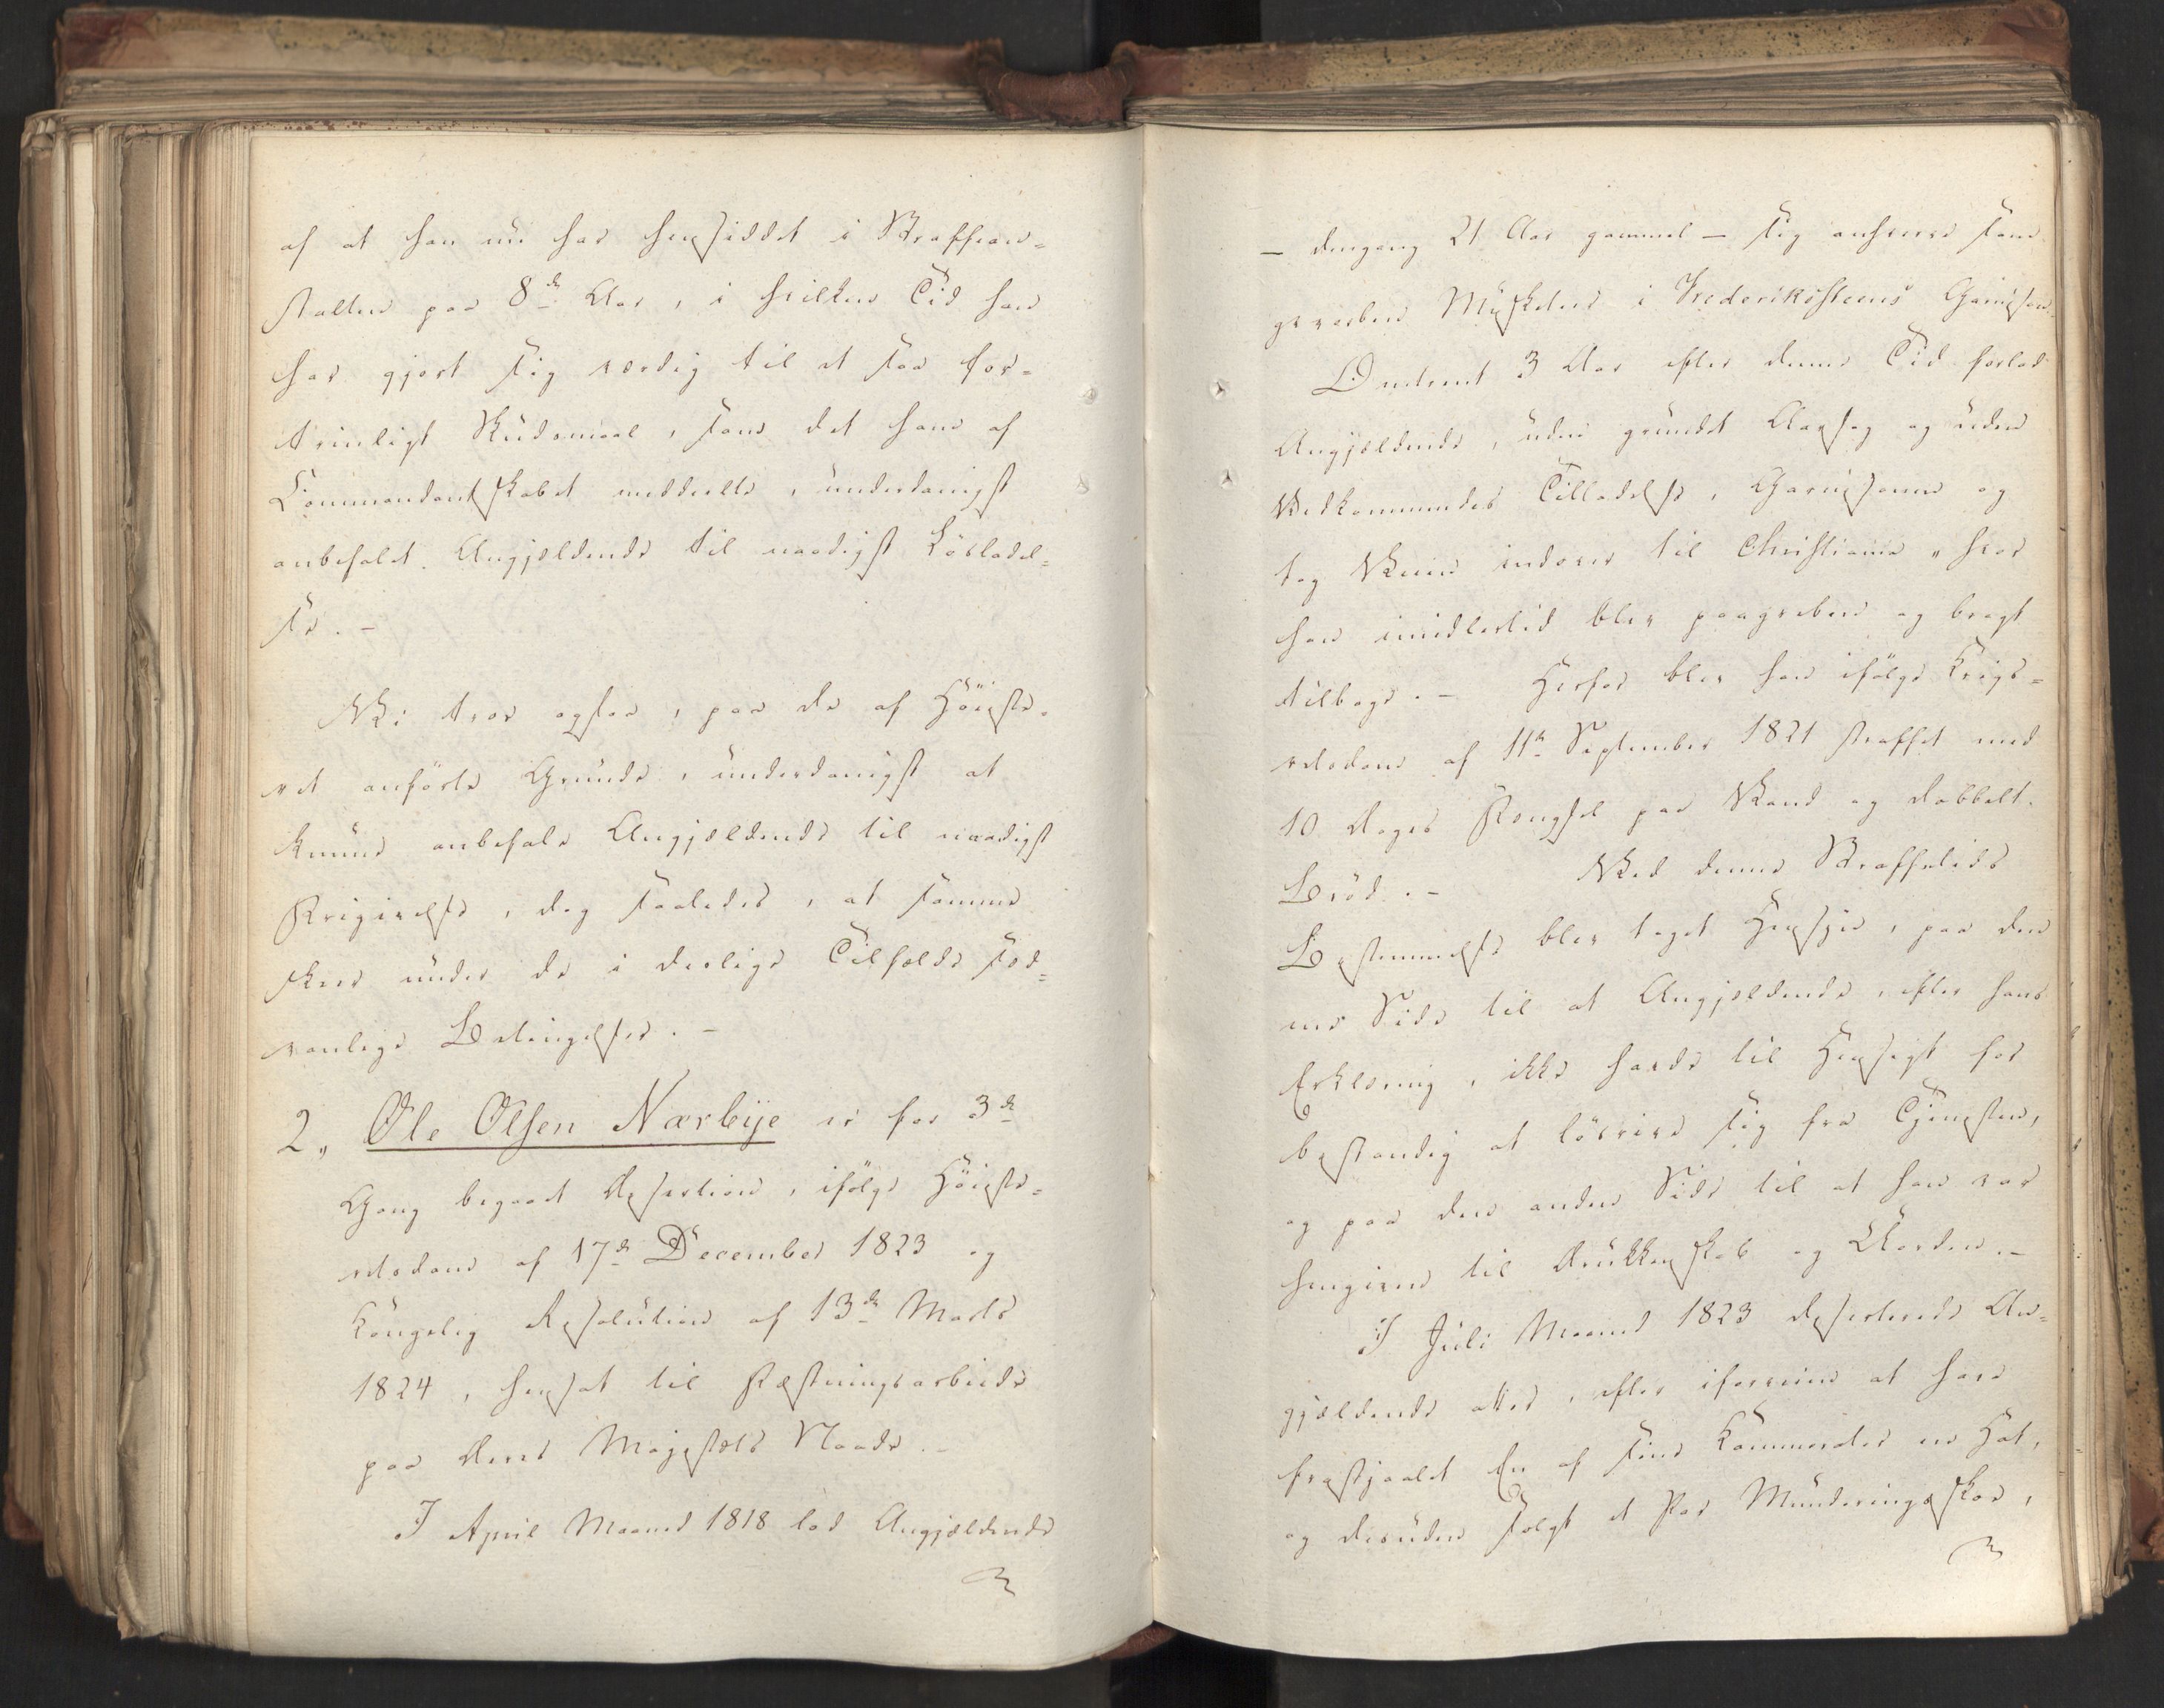 af at han nu har hensiddet i Straffean-
stalten paa 8de Aar, i hvilken Tid han
har gjort sig værdig til et saa for-
trinligt Skudsmaal, som det ham af
Commandantskabet meddeelte, underdanigst
anbefalet Angjældende til naadigst Løsladel-
se. -
Vi troe ogsaa, paa de af Høieste-
ret anførte Grunde, underdanigst at
kunne anbefale Angjældende til naadigst
Frigivelse, dog saaledes, at samme
skeer under de i deslige Tilfælde sæd-
vanlige Betingelser. -
2, Ole Olsen Nærbÿe er for 3de
Gang begaaet Desertion, ifølge Høieste-
retsdom af 17de December 1823 og
Kongelig Resolution af 13de Marts
1824, hensat til Fæstningsarbeide
paa Deres Majestæts Naade. -
I April Maaned 1818 lod Angjældende
- dengang 21 Aar gammel - sig anhverve som
gevorben Musketeer i Frederikssteens Garnison.
Omtrent 3 Aar efter denne Tid forlod
Angjældende, uden grundet Aarsag og uden
Vedkommendes Tilladelse, Garnisonen og
tog Veien indover til Christiania, hvor
han imidlertid blev paagreben og bragt
tilbage. - Herfor blev han ifølge Krigs-
retsdom af 11te September 1821 straffet med
10 Dages Fængsel paa Vand og dobbelt
Brød. - Ved denne Straffetids
Bestemmelse blev taget Hensyn, paa den
ene Side til at Angjældende, efter hans
Erklæring, ikke havde til Hensigt for
bestandig at løsrive sig fra Tjenesten,
og paa den anden Side til at han var
hengiven til Drukkenskab og Uorden. -
I Juli Maaned 1823 deserterede An-
gjældende atter, efter iforveien at have
frastjaalet En af sine Kammerater en Hat,
og desuden solgt et Par Munderingsskoe,